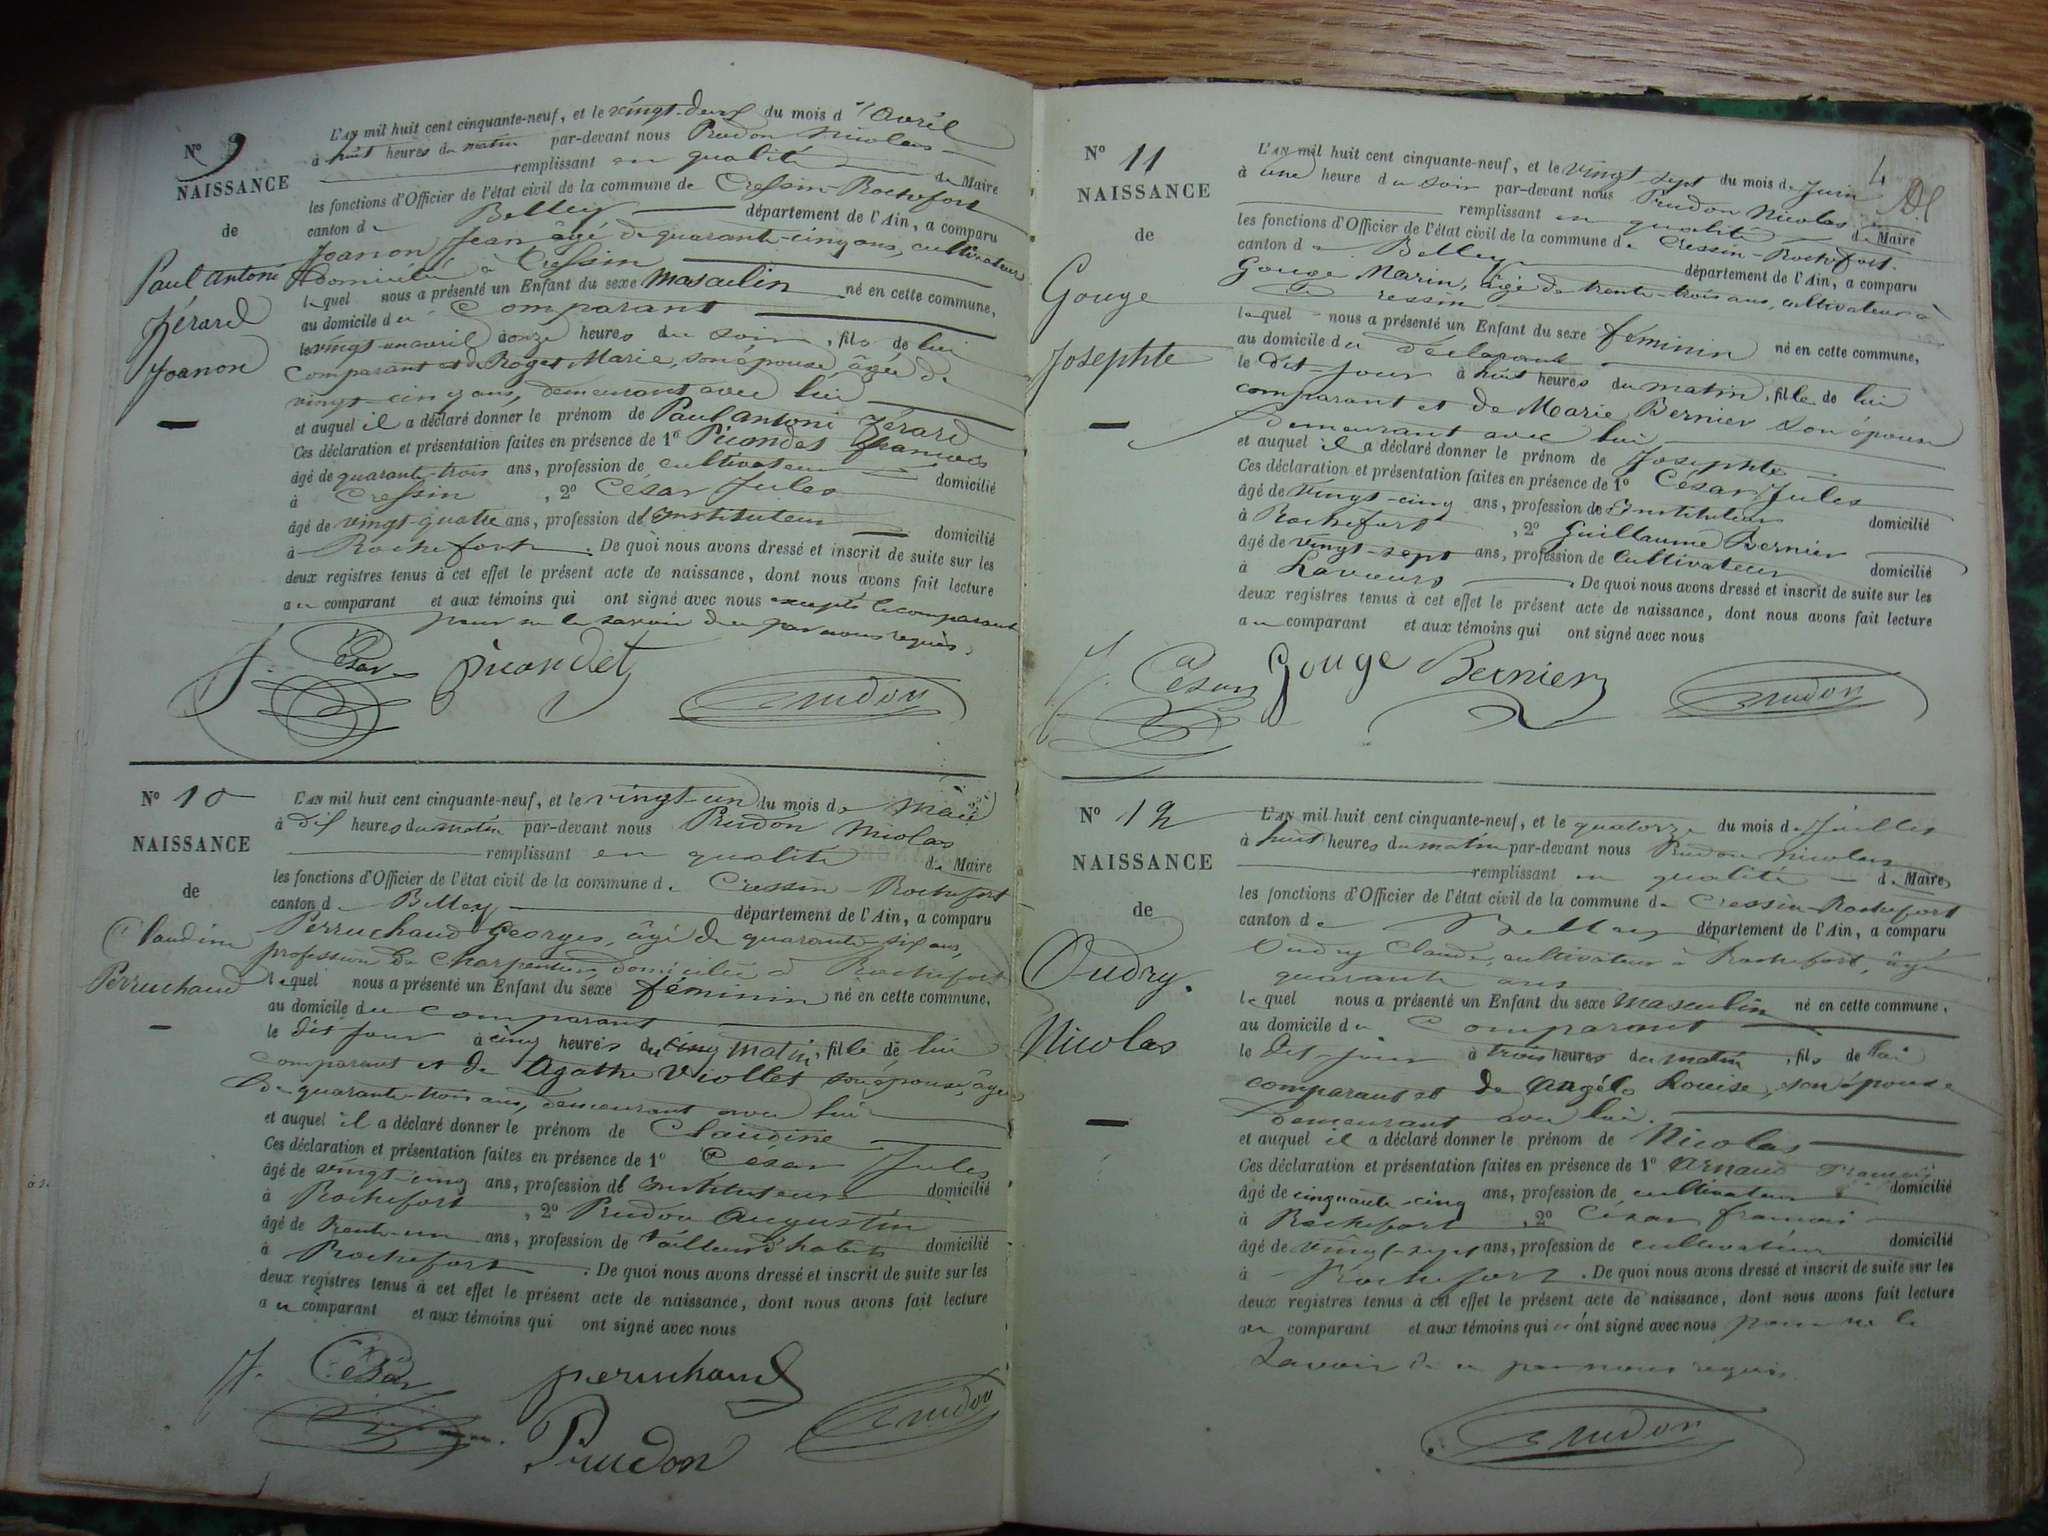 N° 9
NAISSANCE
de
Paul Antoni
Zérard
Joanon
L'AN mil huit cent cinquante-neuf, et le vingt-deux du mois d'avril
à huit heures du matin par-devant nous Prudon Nicolas
remplissant en qualité de Maire
les fonctions d'Officier de l'état civil de la commune de Cressin-Rochefort
canton de Belley département de l'Ain, a comparu
Joanon Jean âgé de quarante-cinq ans, cultivateur
domicilié à Cressin
lequel nous a présenté un Enfant du sexe masculin né en cette commune,
au domicile du Comparant
le vingt-un avril à onze heures du soir, fils de lui
comparant et de Roget Marie, son épouse, âgée de
vingt-cinq ans, demeurant avec lui
et auquel il a déclaré donner le prénom de Paul Antoni Zérard
Ces déclaration et présentation faites en présence de 1° Picondet francois
âgé de quarante-trois ans, profession de cultivateur domicilié
à Cressin, 2° César Jules
âgé de vingt-quatre ans, profession de Instituteur domicilié
à Rochefort. De quoi nous avons dressé et inscrit de suite sur les
deux registres tenus à cet effet le présent acte de naissance, dont nous avons fait lecture
au comparant et aux témoins qui ont signé avec nous excepté le comparant
pour ne le savoir de ce par nous requis.
J. César Picondet Prudon
N° 10
NAISSANCE
de
Claudine
Perruchaud
L'AN mil huit cent cinquante-neuf, et le vingt-un du mois de Mai
à dix heures du matin par-devant nous Prudon Nicolas
remplissant en qualité de Maire
les fonctions d'Officier de l'état civil de la commune de Cressin-Rochefort
canton de Belley département de l'Ain, a comparu
Perruchaud Georges, âgé de quarante-six ans,
profession de Charpentier, domicilié à Rochefort
lequel nous a présenté un Enfant du sexe féminin né en cette commune,
au domicile du comparant
le dit jour à cinq heures du cinq matin, fille de lui
comparant et de Agathe Viollet son épouse, âgée
de quarante-trois ans, demeurant avec lui
et auquel il a déclaré donner le prénom de Claudine
Ces déclaration et présentation faites en présence de 1° César Jules
âgé de vingt-cinq ans, profession de Instituteur domicilié
à Rochefort, 2° Prudon Augustin
âgé de trente-un ans, profession de tailleur d'habits domicilié
à Rochefort. De quoi nous avons dressé et inscrit de suite sur les
deux registres tenus à cet effet le présent acte de naissance, dont nous avons fait lecture
au comparant et aux témoins qui ont signé avec nous
J. César perruchaud Prudon
Prudon
4
N° 11
NAISSANCE
de
Gouge
Josephte
L'AN mil huit cent cinquante-neuf, et le vingt sept du mois de Juin
à une heure du soir par-devant nous Prudon Nicolas
remplissant en qualité de Maire
les fonctions d'Officier de l'état civil de la commune de Cressin-Rochefort.
canton de Belley département de l'Ain, a comparu
Gouge Marin, âgé de trente-trois ans, cultivateur à
Cressin
lequel nous a présenté un Enfant du sexe féminin né en cette commune,
au domicile du déclarant
le dit-jour à huit heures du matin, fille de lui
comparant et de Marie Bernier son épouse
demeurant avec lui
et auquel il a déclaré donner le prénom de Josephte
Ces déclaration et présentation faites en présence de 1° César Jules
âgé de vingt-cinq ans, profession de Instituteur domicilié
à Rochefort, 2° Guillaume Bernier
âgé de vingt-sept ans, profession de Cultivateur domicilié
à Lavours. De quoi nous avons dressé et inscrit de suite sur les
deux registres tenus à cet effet le présent acte de naissance, dont nous avons fait lecture
au comparant et aux témoins qui ont signé avec nous
J. César Gouge Bernier Prudon
N° 12
NAISSANCE
de
Oudry.
Nicolas
L'AN mil huit cent cinquante-neuf, et le quatorze du mois de Juillet
à huit heures du matin par-devant nous Prudon Nicolas
remplissant en qualité de Maire
les fonctions d'Officier de l'état civil de la commune de Cressin-Rochefort
canton de Belley département de l'Ain, a comparu
Oudry Claude, cultivateur à Rochefort, âgé
quarante ans
lequel nous a présenté un Enfant du sexe masculin né en cette commune,
au domicile du Comparant
le dit-jour à trois heures du matin, fils de lui
comparant et de Angél Louise, son épouse
demeurant avec lui.
et auquel il a déclaré donner le prénom de Nicolas
Ces déclaration et présentation faites en présence de 1° Arnaud François
âgé de cinquante-cinq ans, profession de cultivateur domicilié
à Rochefort, 2° César francois
âgé de vingt-sept ans, profession de cultivateur domicilié
à Rochefort. De quoi nous avons dressé et inscrit de suite sur les
deux registres tenus à cet effet le présent acte de naissance, dont nous avons fait lecture
au comparant et aux témoins qui ont signé avec nous pour ne le
savoir de ce par nous requis.
Prudon